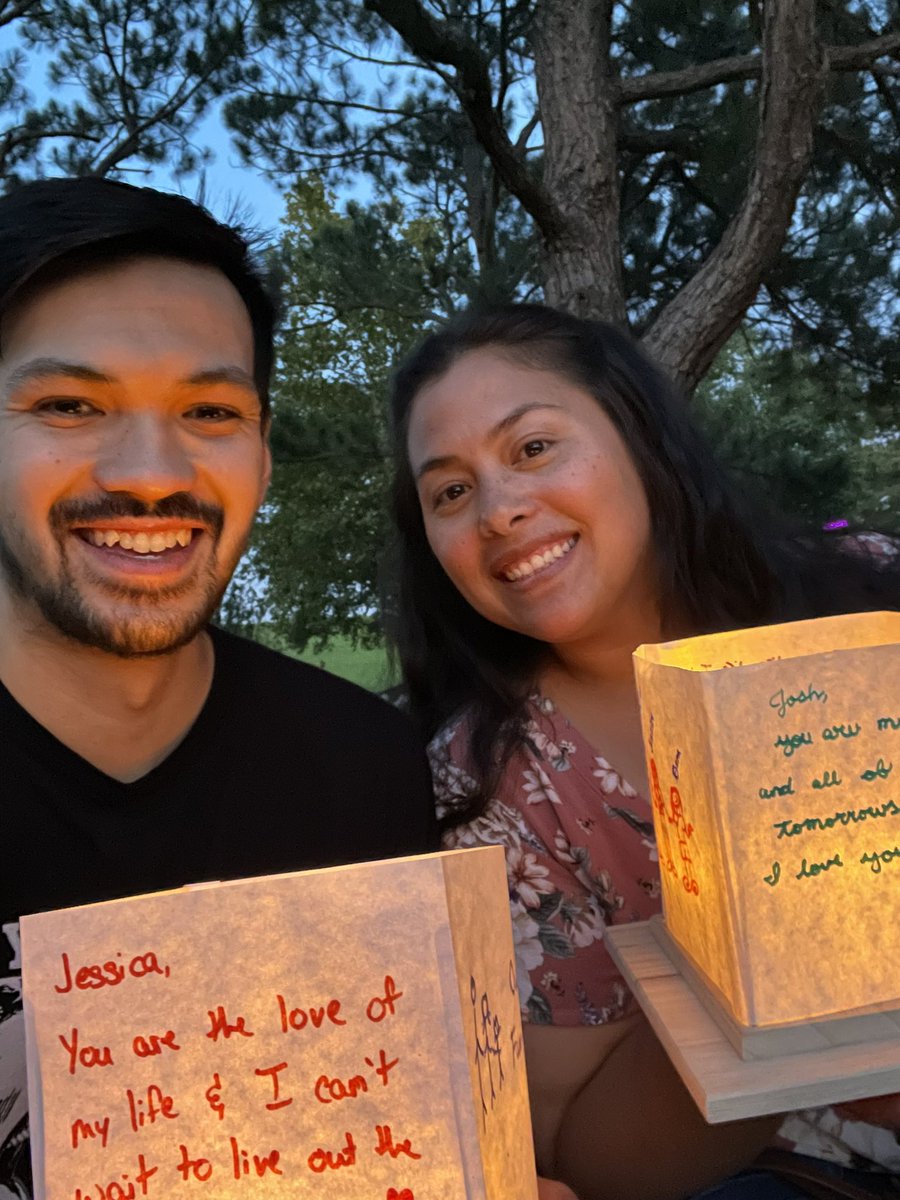 Jessica,
You are the love of
my life & I can't
wait to live out the
Josh,
you are m
and all of
tomorrows
I love you